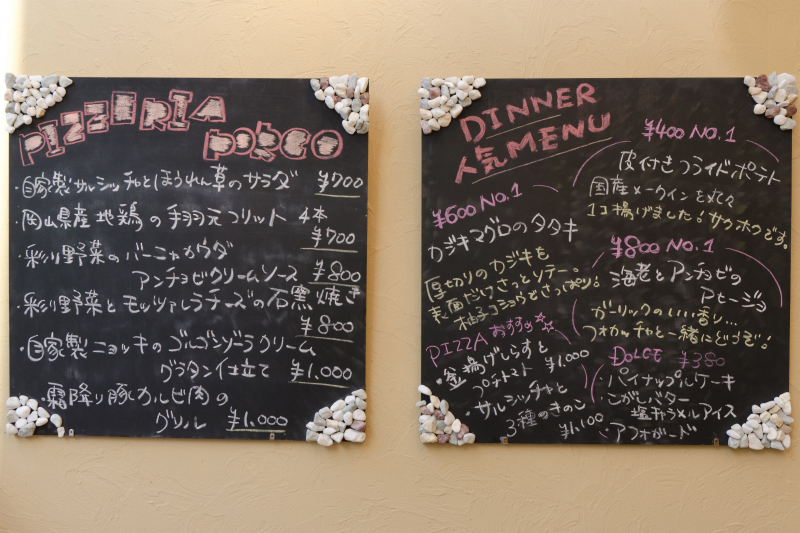 PIZZERIA
PORCO
・自家製サルシッチャとほうれん草のサラダ ¥700
・岡山県産地鶏の手羽元フリット 4本
¥700
・彩り野菜のバーニャカウダ
アンチョビクリームソース ¥800
・彩り野菜とモッツァレラチーズの石窯焼き
¥800
・自家製ニョッキのゴルゴンゾーラクリーム
グラタン仕立て ¥1,000
・霜降り豚カルビ肉の
グリル ¥1,000
DINNER
人気MENU
¥600 NO.1
カジキマグロのタタキ
厚切りのカジキを
表面だけさっとソテー。
柚子コショウでさっぱり!
PIZZA おすすめ☆☆
・釜揚げしらすと
プチトマト ¥1,000
・サルシッチャと
3種のきのこ
¥1,100
¥400 NO.1
皮付きフライドポテト
国産メークインを丸々
1コ揚げました!サクホクです。
¥800 NO.1
海老とアンチョビの
アヒージョ
ガーリックのいい香り…
フォカッチャと一緒にどうぞ!
DOLCE ¥380
・パイナップルケーキ
・こがしバター
塩キャラメルアイス
・アフォガード